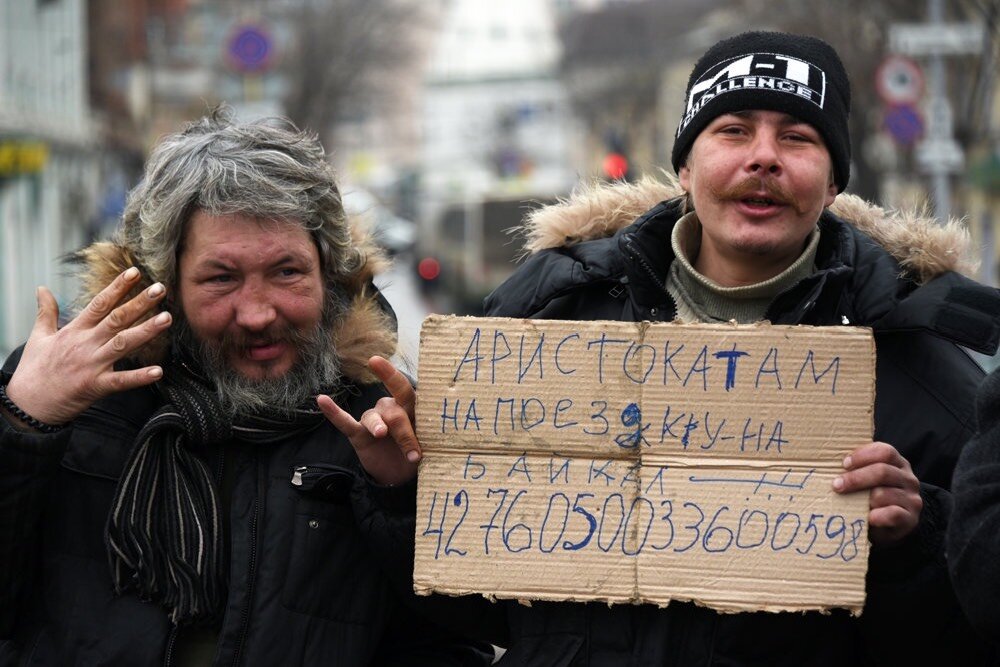 CHALLENGE
АРИСТОКАТАМ
НА ПОЕЗДККУ-НА
БАЙКАЛ
4276050033600598